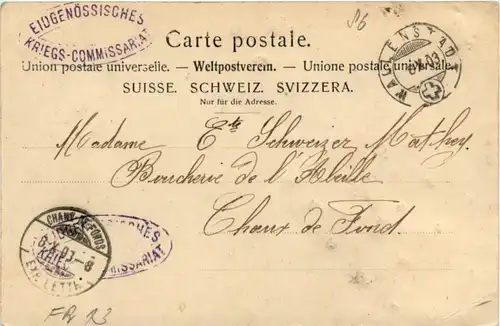 EIDGENÖSSISCHES
KRIEGS-COMMISSARIAT
Carte postale.
Union postale universelle. — Weltpostverein. — Unione postale universale.
SUISSE. SCHWEIZ. SVIZZERA.
Nur für die Adresse.
WALLENSTADT
Madame Ete Schweizer Mathey
Boucherie de l'Abeille
Chaux de Fond.
CHAUX-DE-FONDS
8.X.03.-8
EXP. LETTR.
COMMISSARIAT